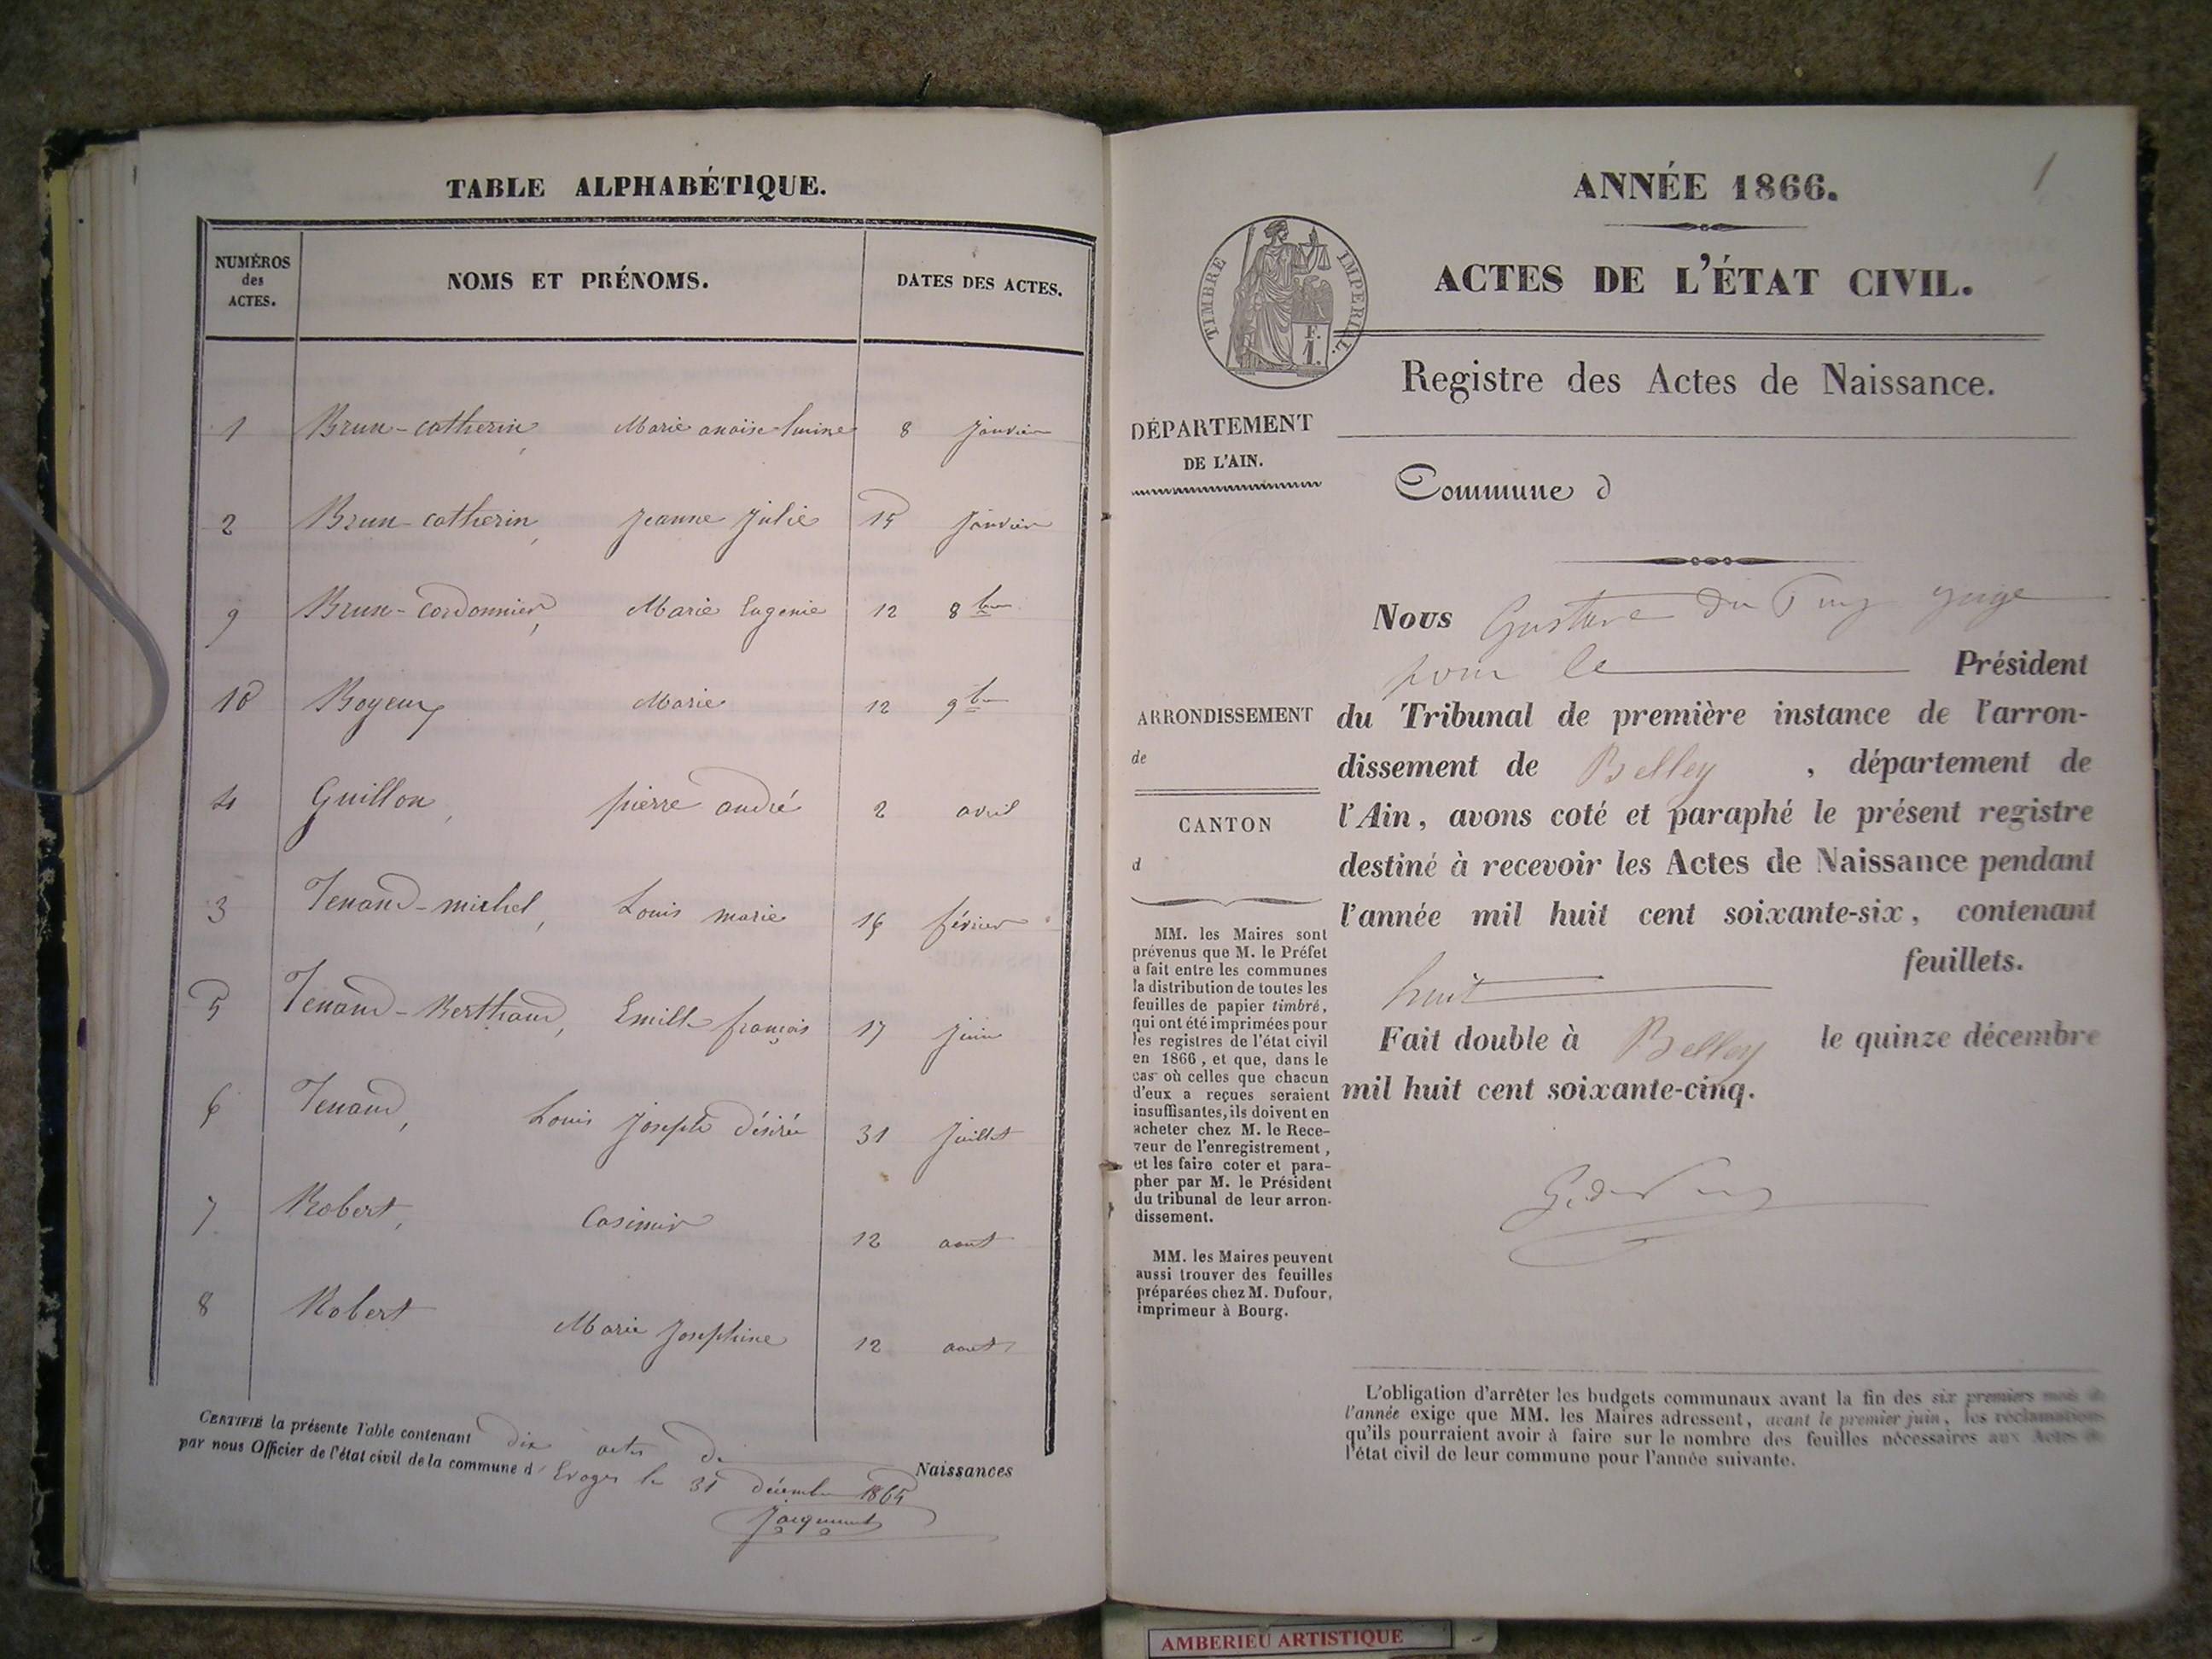 TABLE ALPHABÉTIQUE.
NUMÉROS
des
ACTES.
NOMS ET PRÉNOMS.
DATES DES ACTES.
1 Brun-catherin, Marie anaïse 8 Janvier
2 Brun-catherin, Jeanne Julie 15 Janvier
9 Brun-Cordonnier, Marie Eugenie 12 8bre
10 Boyeux Marie 12 9bre
4 Guillon, pierre andré 2 avril
3 Tenand-michel, Louis marie 16 février
5 Tenand-Berthand, Emille françois 17 Juin
6 Tenand, Louis Joseph désirée 31 Juillet
7 Robert, Casimir 12 aout
8 Robert Marie Josephine 12 aout
CERTIFIÉ la présente Table contenant dix actes de Naissances
par nous Officier de l'état civil de la commune d'Evoges le 31 décembre 1865
Jacquemet
1
ANNÉE 1866.
TIMBRE IMPERIAL.
F.
1.
ACTES DE L'ÉTAT CIVIL.
Registre des Actes de Naissance.
DÉPARTEMENT
DE L'AIN.
Commune d
Nous Gustave Du Puy Juge
pour le Président
ARRONDISSEMENT
de
CANTON
d
du Tribunal de première instance de l'arron-
dissement de Belley, département de
l'Ain, avons coté et paraphé le présent registre
destiné à recevoir les Actes de Naissance pendant
l'année mil huit cent soixante-six, contenant
huit feuillets.
Fait double à Belley le quinze décembre
mil huit cent soixante-cinq.
MM. les Maires sont
prévenus que M. le Préfet
a fait entre les communes
la distribution de toutes les
feuilles de papier timbré,
qui ont été imprimées pour
les registres de l'état civil
en 1866, et que, dans le
cas où celles que chacun
d'eux a reçues seraient
insuffisantes, ils doivent en
acheter chez M. le Rece-
veur de l'enregistrement,
et les faire coter et para-
pher par M. le Président
du tribunal de leur arron-
dissement.
MM. les Maires peuvent
aussi trouver des feuilles
préparées chez M. Dufour,
imprimeur à Bourg.
G. du Puy
L'obligation d'arrêter les budgets communaux avant la fin des six premiers mois de
l'année exige que MM. les Maires adressent, avant le premier juin, les réclamations
qu'ils pourraient avoir à faire sur le nombre des feuilles nécessaires aux Actes de
l'état civil de leur commune pour l'année suivante.
AMBERIEU ARTISTIQUE